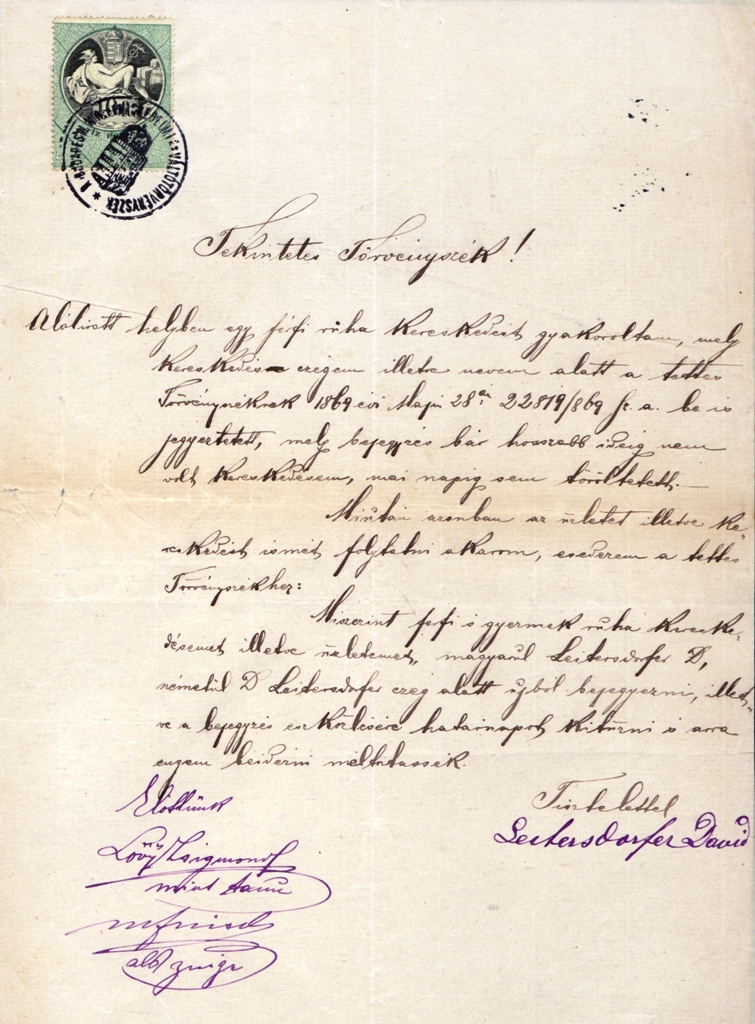 A BUDAPESTI KIR. KERESKEDELMI ÉS VÁLTÓTÖRVÉNYSZÉK
Tekintetes Törvényszék!
Alólírott helyben egy férfi ruha kereskedést gyakoroltam, mely
kereskedés czégem illetve nevem alatt a tettes
Törvényszéknek 1869 évi Maju 28án 22819/869 sz. a. be is
jegyeztetett, mely bejegyzés bár hosszabb ideig nem
volt kereskedésem, mai napig sem töröltetett.
Miután azonban az üzletet illetve ke-
reskedést ismét folytatni akarom, esedezem a tettes
Törvényszékhez:
Miszerint féfi s gyermek ruha kereske-
désemet illetve üzletemet, magyarul Leitersdorfer D,
németül D Leitersdorfer czég alatt ujból bejegyezni, illet-
ve a bejegyzés eszközlésére határnapot kitüzni s arra
engem beidézni méltóztassék.
Tisztelettel
Leitersdorfer David
Előttünk
Lövÿ Zsigmond
mint tanu